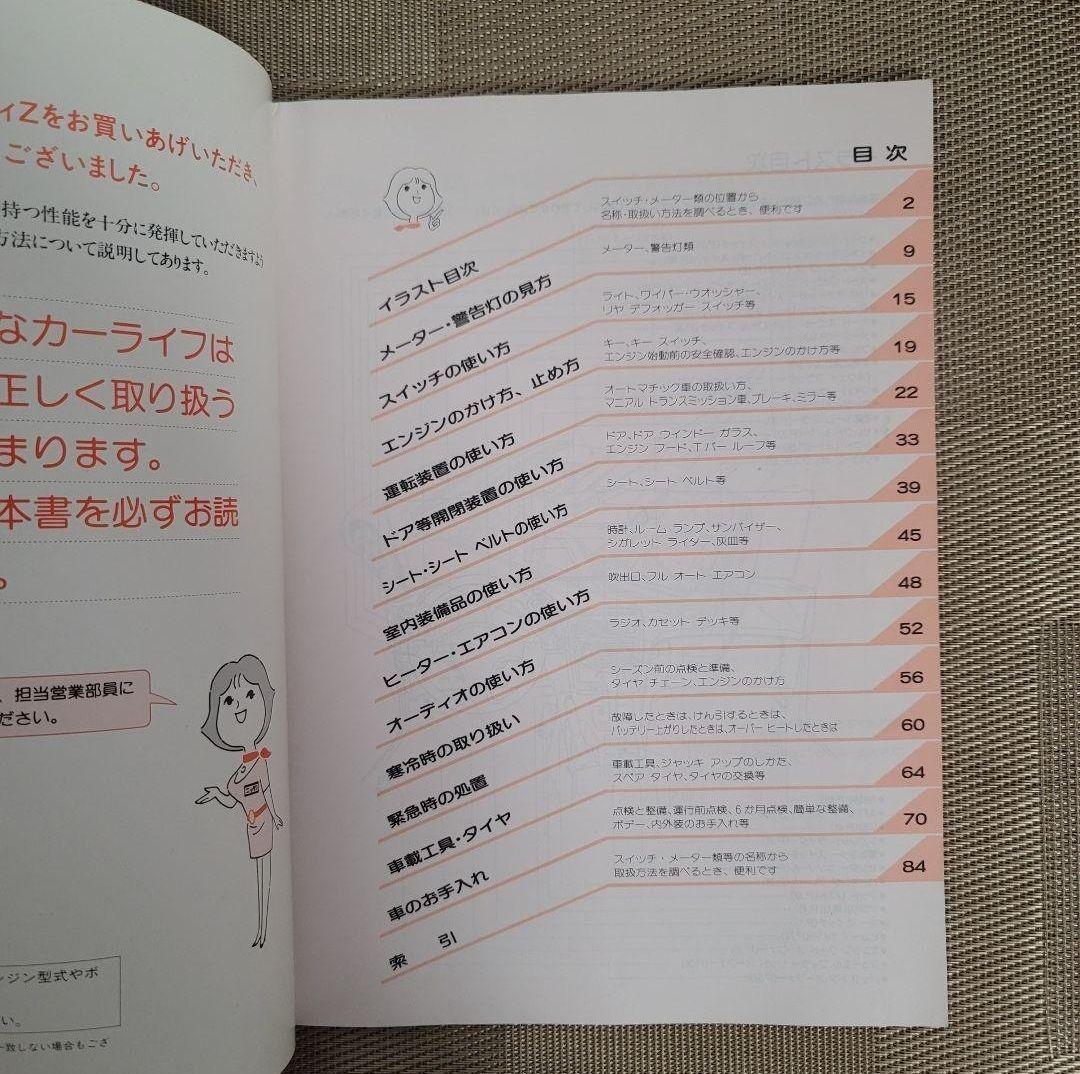 ィZをお買いあげいただき、
ございました。
持つ性能を十分に発揮していただきますよう
方法について説明してあります。
なカーライフは
正しく取り扱う
まります。
本書を必ずお読
。
、担当営業部員に
ださい。
ンジン型式やボ
い。
一致しない場合もござ
目次
イラスト目次
スイッチ・メーター類の位置から
名称・取扱い方法を調べるとき、便利です
2
メーター・警告灯の見方
メーター、警告灯類
9
スイッチの使い方
ライト、ワイパー・ウオッシャー、
リヤ デフォッガー スイッチ等
15
エンジンのかけ方、止め方
キー、キー スイッチ、
エンジン始動前の安全確認、エンジンのかけ方等
19
運転装置の使い方
オートマチック車の取扱い方、
マニアル トランスミッション車、ブレーキ、ミラー等
22
ドア等開閉装置の使い方
ドア、ドア ウインドー ガラス、
エンジン フード、Tバー ルーフ等
33
シート・シート ベルトの使い方
シート、シート ベルト等
39
室内装備品の使い方
時計、ルーム ランプ、サンバイザー、
シガレット ライター、灰皿等
45
ヒーター・エアコンの使い方
吹出口、フル オート エアコン
48
オーディオの使い方
ラジオ、カセット デッキ等
52
寒冷時の取り扱い
シーズン前の点検と準備、
タイヤ チェーン、エンジンのかけ方
56
緊急時の処置
故障したときは、けん引するときは、
バッテリー上がりしたときは、オーバー ヒートしたときは
60
車載工具・タイヤ
車載工具、ジャッキ アップのしかた、
スペア タイヤ、タイヤの交換等
64
車のお手入れ
点検と整備、運行前点検、6か月点検、簡単な整備、
ボデー、内外装のお手入れ等
70
索引
スイッチ・メーター類等の名称から
取扱方法を調べるとき、便利です
84